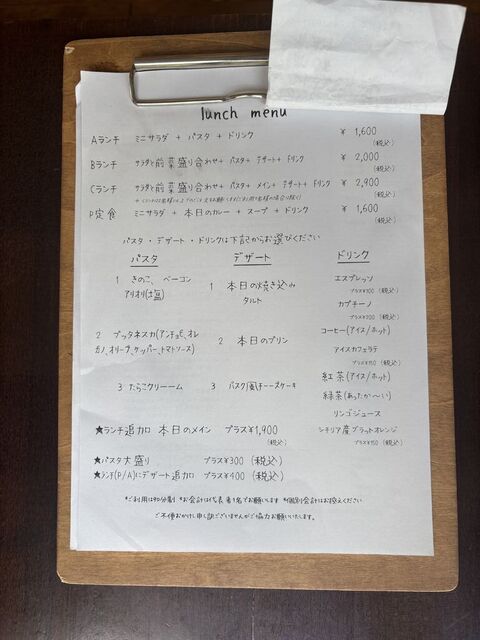 lunch menu
Aランチ ミニサラダ + パスタ + ドリンク ¥ 1,600
(税込)
Bランチ サラダと前菜盛り合わせ + パスタ + デザート + ドリンク ¥ 2,000
(税込)
Cランチ サラダと前菜盛り合わせ + パスタ + メイン + デザート + ドリンク ¥ 2,900
(税込)
P定食 ミニサラダ + 本日のカレー + スープ + ドリンク ¥ 1,600
(税込)
パスタ・デザート・ドリンクは下記からお選びください
パスタ
1 きのこ、ベーコン
アリオリ(塩)
2 プッタネスカ(アンチョビ、オレ
ガノ、オリーブ、ケッパー、トマトソース)
3 たらこクリーム
デザート
1 本日の焼き込み
タルト
2 本日のプリン
3 バスク風チーズケーキ
ドリンク
エスプレッソ
プラス¥100 (税込)
カプチーノ
プラス¥200 (税込)
コーヒー(アイス/ホット)
アイスカフェラテ
プラス¥150 (税込)
紅茶(アイス/ホット)
緑茶(あったか〜い)
リンゴジュース
シチリア産ブラッドオレンジ
プラス¥150 (税込)
★ランチ追加 本日のメイン プラス¥1,900
(税込)
★パスタ大盛り プラス¥300 (税込)
★ランチ(P/A)にデザート追加 プラス¥400 (税込)
*ご利用は90分制 *お会計は代表者1名でお願いします *個別会計はお控えください
ご不便おかけし申し訳ございませんがご協力お願いいたします。